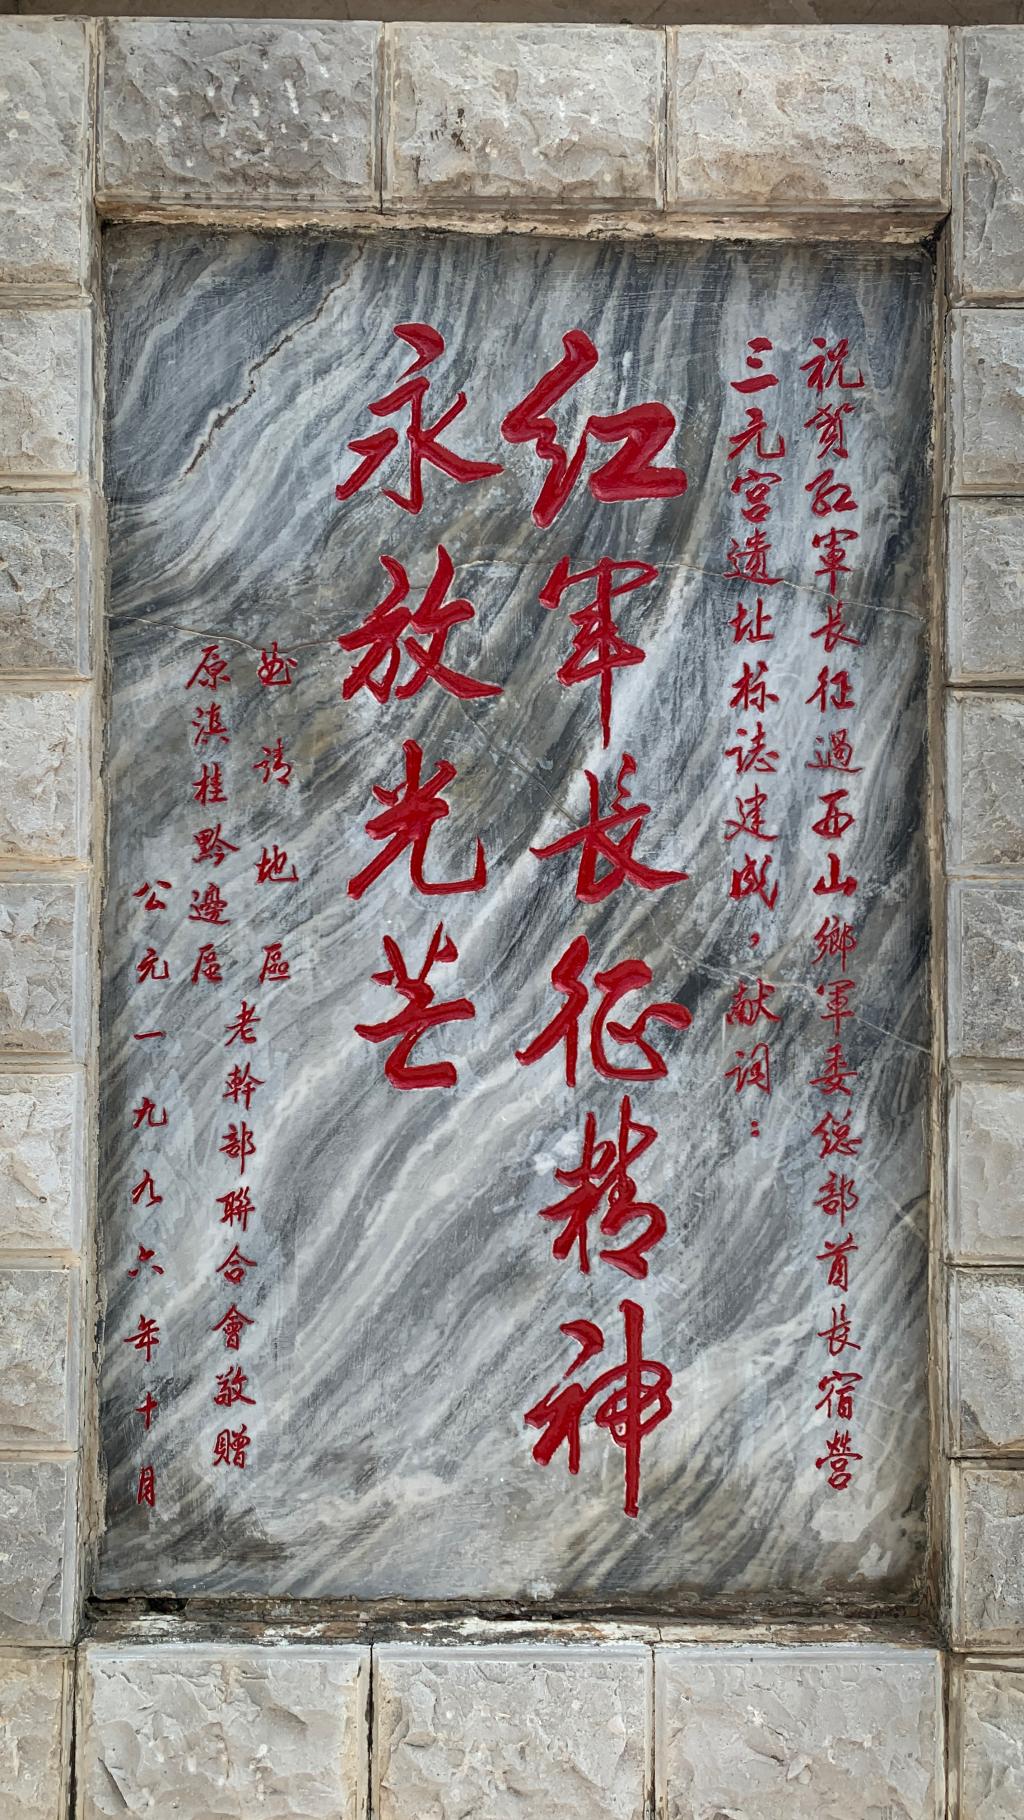 祝賀红軍長征過西山鄉軍委総部首長宿營
三元宮遺址标誌建成，献词：
红军長征精神
永放光芒
曲靖地區
原滇桂黔邊區
老幹部聯合會敬贈
公元一九九六年十月